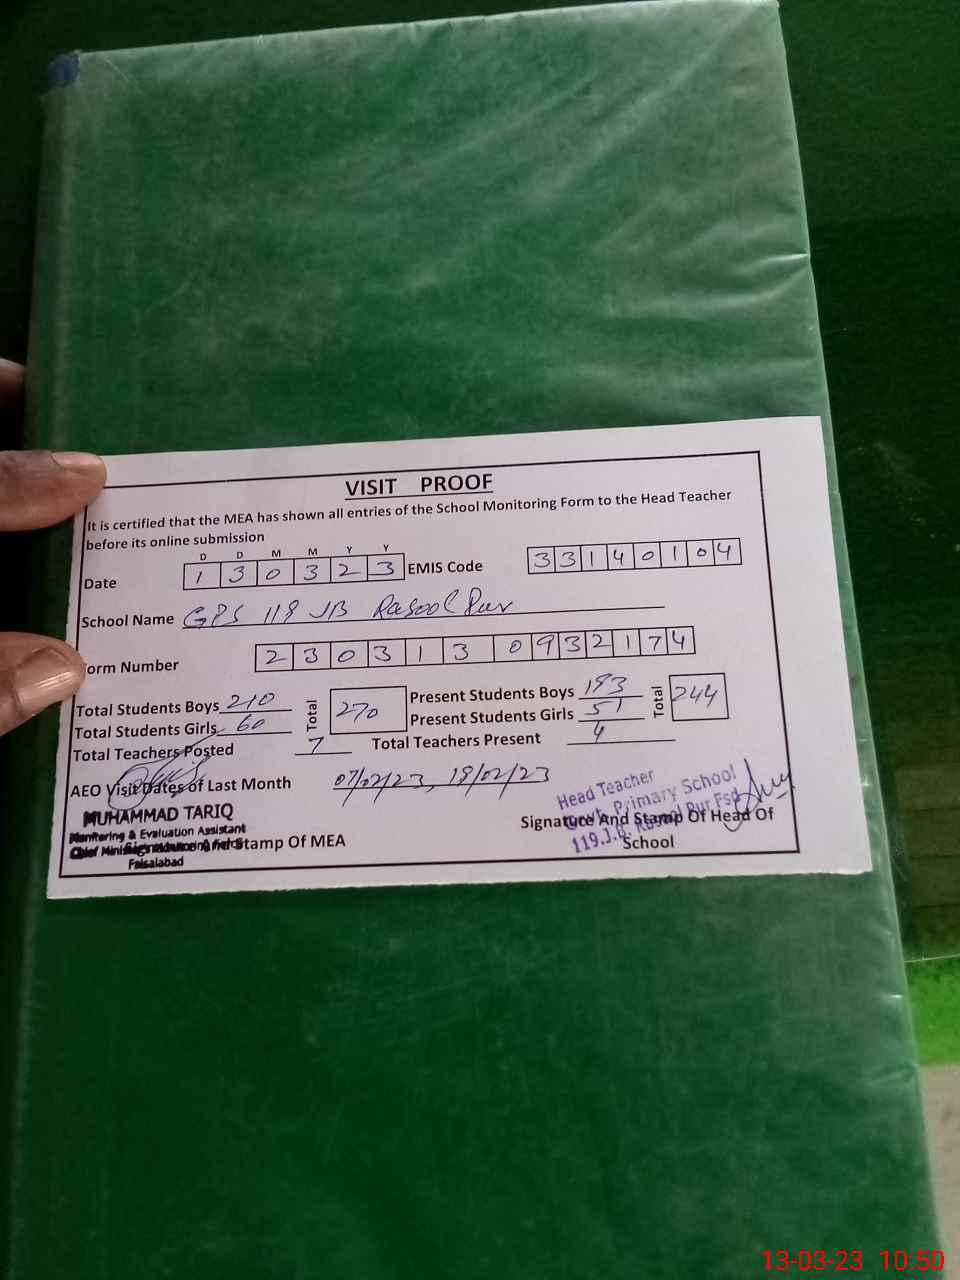 VISIT PROOF
It is certified that the MEA has shown all entries of the School Monitoring Form to the Head Teacher
before its online submission
D D M M Y Y
Date 1 3 0 3 2 3 EMIS Code 3 3 1 4 0 1 0 4
School Name GPS 119 JB Rasool Pur
orm Number 2 3 0 3 1 3 0 9 3 2 1 7 4
Total Students Boys 210 Total 270 Present Students Boys 193 Total 244
Total Students Girls 60 Present Students Girls 51
Total Teachers Posted 7 Total Teachers Present 4
AEO Visit Dates of Last Month 07/02/23, 18/02/23
MUHAMMAD TARIQ
Monitoring & Evaluation Assistant
Chief
Faisalabad
And Stamp Of MEA
Head Teacher
Govt. Primary School
119.J.B. Rasool Pur Fsd
Signature And Stamp Of Head Of
School
13-03-23 10:50